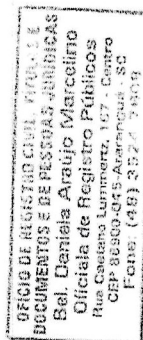 OFÍCIO DE REGISTRO CIVIL, TÍTULOS E
DOCUMENTOS E DE PESSOAS JURÍDICAS
Bel. Daniela Araújo Marcelino
Oficiala de Registro Públicos
Rua Caetano Lummertz, 107 Centro
CEP 88900-045 Araranguá SC
Fone: (48)